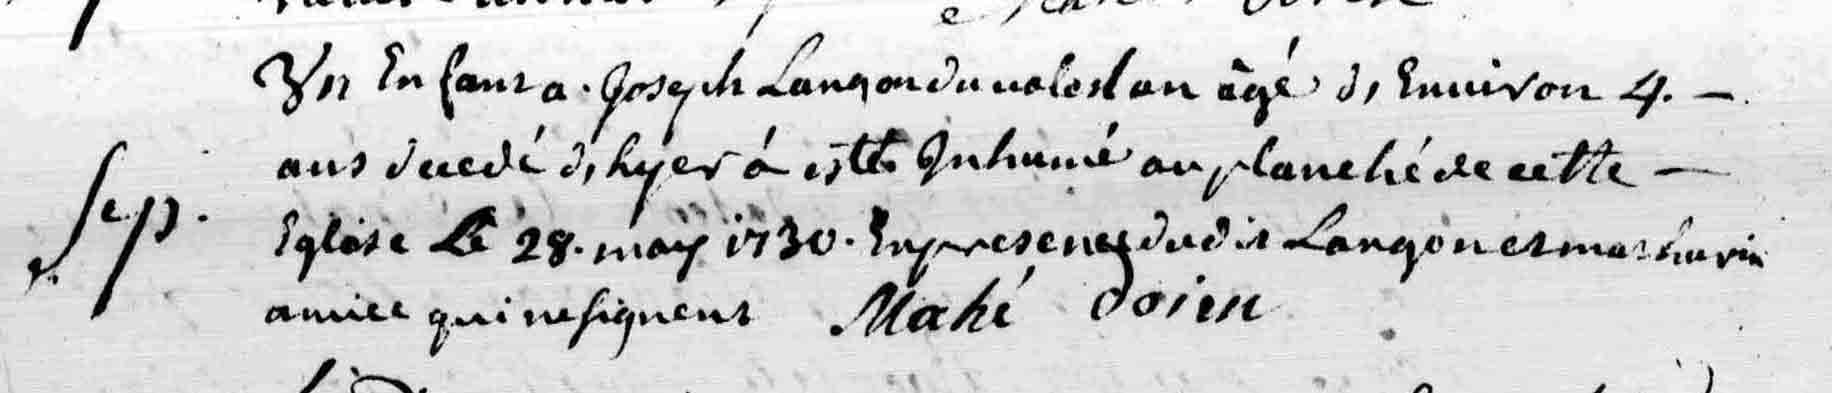 Un Enfant a Joseph Langon du valestan âgé de Environ 4. —
ans decedé d'hyer á esté Inhumé au planché de cette —
Sep. Eglise Le 28. may 1730. En presence dudit Langon et mathurin
amice qui ne signent Mahé Doien